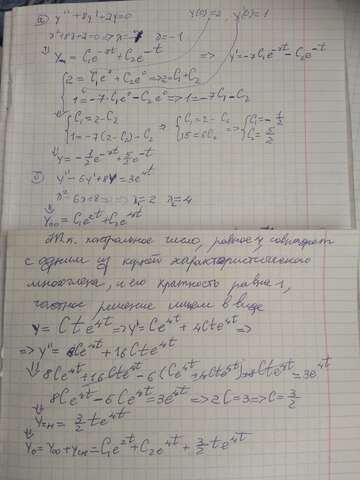 а) y'' + 8y' + 7y = 0    y(0) = 2, y'(0) = 1
λ² + 8λ + 7 = 0 => λ = -7  λ = -1
y = C₁e^{-7t} + C₂e^{-t} => y' = -7C₁e^{-7t} - C₂e^{-t}
{ 2 = C₁e⁰ + C₂e⁰ => 2 = C₁ + C₂
1 = -7·C₁e⁰ - C₂e⁰ => 1 = -7C₁ - C₂
{ C₁ = 2 - C₂    { C₁ = 2 - C₂    { C₁ = -1/2
1 = -7(2 - C₂) - C₂ => 15 = 6C₂ => C₂ = 5/2
y = -1/2 e^{-7t} + 5/2 e^{-t}
б) y'' - 6y' + 8y = 3e^{4t}
λ² - 6λ + 8 = 0 => λ₁ = 2  λ₂ = 4
y₀₀ = C₁e^{2t} + C₂e^{4t}
Т.к. число, равное 4 совпадает
с одним из корней характеристического
многочлена, и его кратность равна 1,
частное решение ищем в виде
y = Cte^{4t} => y' = Ce^{4t} + 4Cte^{4t} =>
=> y'' = 8Ce^{4t} + 16Cte^{4t}
8Ce^{4t} + 16Cte^{4t} - 6(Ce^{4t} + 4Cte^{4t}) + 8Cte^{4t} = 3e^{4t}
8Ce^{4t} - 6Ce^{4t} = 3e^{4t} => 2C = 3 => C = 3/2
y_{чн} = 3/2 te^{4t}
y₀ = y₀₀ + y_{чн} = C₁e^{2t} + C₂e^{4t} + 3/2 te^{4t}